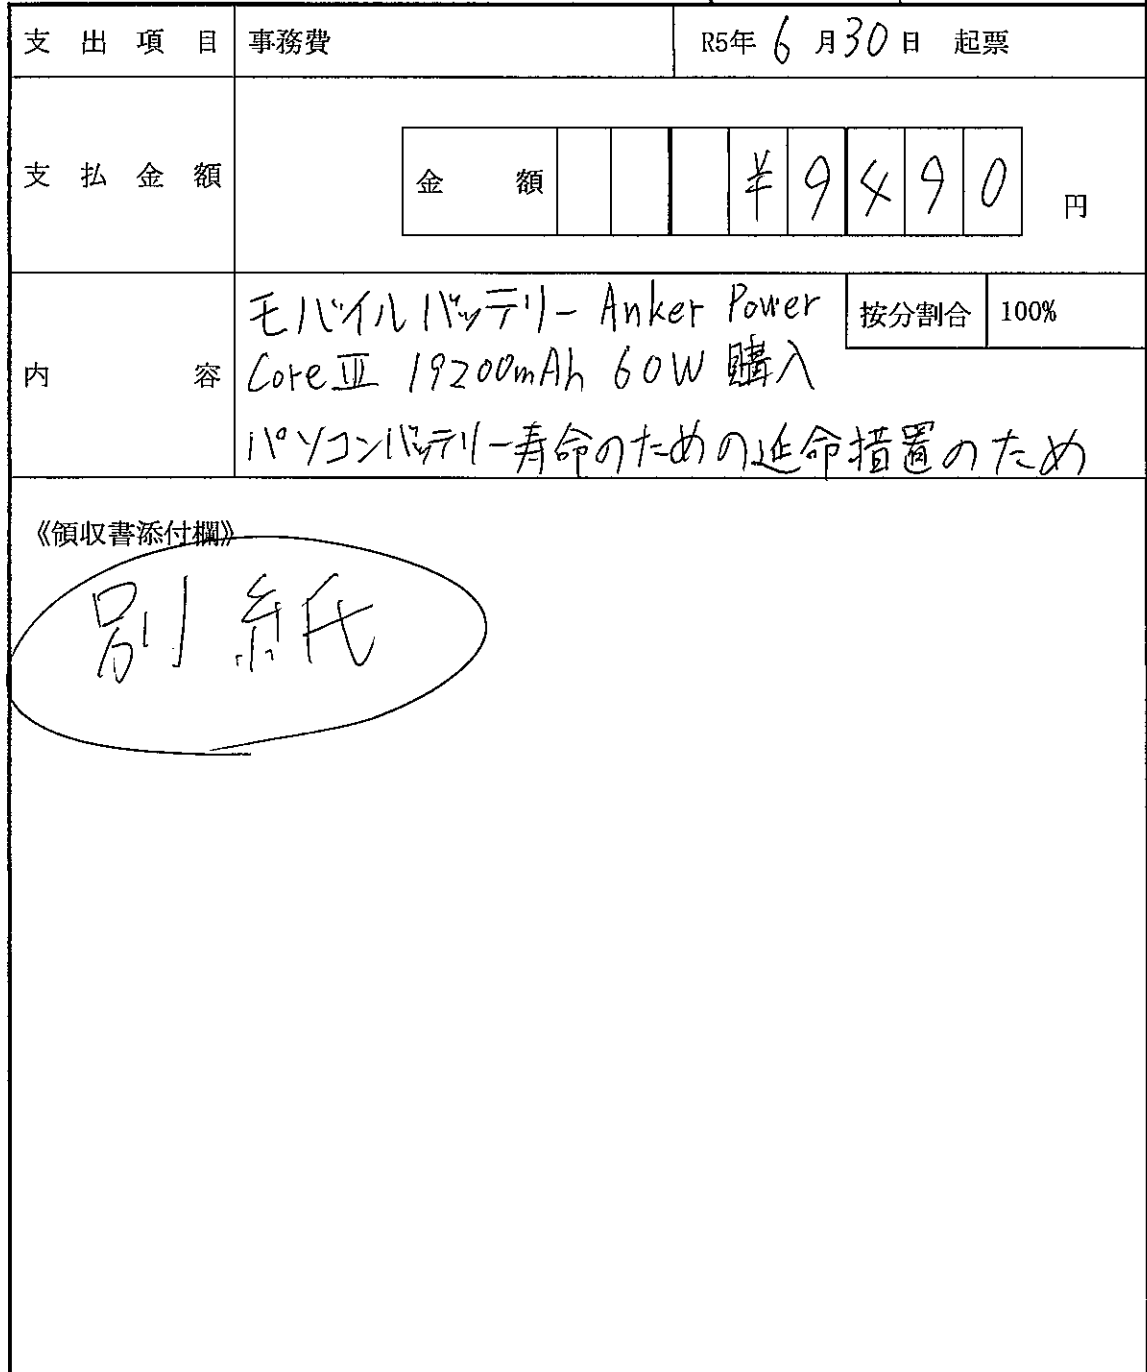 支出項目 事務費 R5年6月30日 起票
支払金額 金額 ¥9490 円
モバイルバッテリー Anker Power 按分割合 100%
内容 CoreⅢ 19200mAh 60W 購入
パソコンバッテリー寿命のための延命措置のため
《領収書添付欄》
別紙